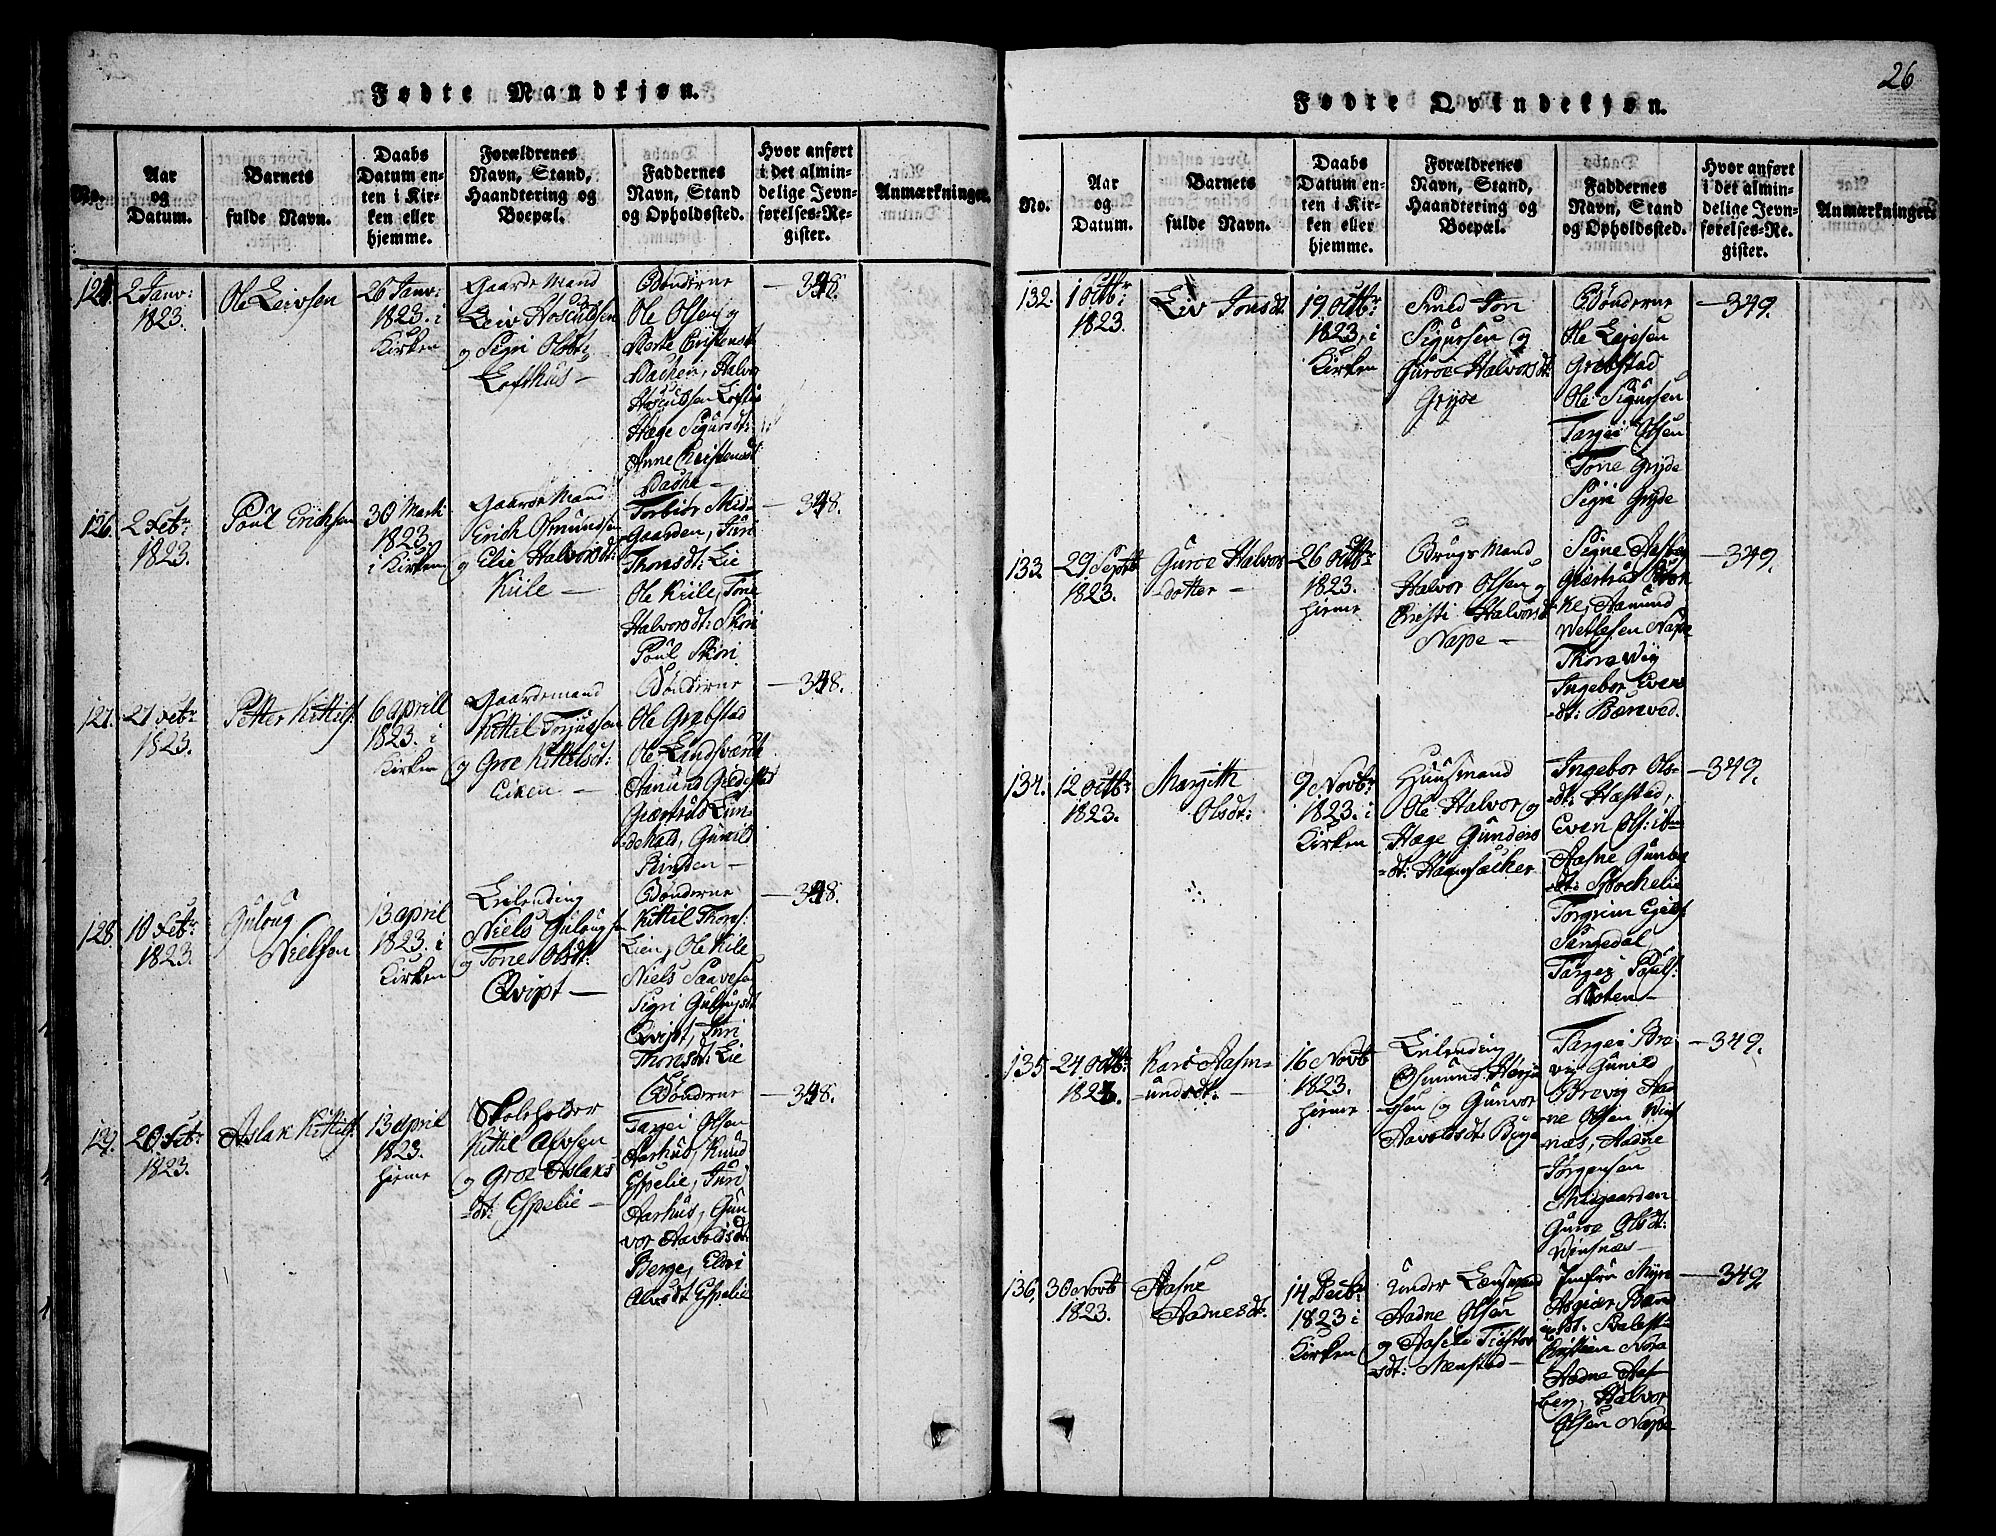 Fødte Mandkjøn.
No.
Aar
og
Datum.
Barnets
fulde Navn.
Daabs
Datum en-
ten i Kir-
ken eller
hjemme.
Forældrenes
Navn, Stand,
Haandtering og
Boepæl.
Faddernes
Navn, Stand
og Opholdssted.
Hvor anført
i det almin-
delige Jevn-
førelses-Re-
gister.
Anmærkninger.
2 Janv:
1823.
Ole Leivsen
26 Janv:
1823. i
Kirken
Gaarde Mand
Leiv Hosculdsen
og Sigri Olsdt:
Lofthus –
Bønderne
Ole Olsen og
Merte Cristensdt
Bachen, Halvor
Hosculdsen Lofthus
Hæge Sigursdt:
Anne Cristensdt
Bache –
– 348.
126.
2 Febr:
1823.
Poul Erichsen
30 Marti
1823.
i Kirken
Gaarde Mand
Erich Osmundsen
og Elie Halvorsdt:
Kiile –
Torbiør Mid-
Gaarden, Juri
Thorsdt: Lie
Ole Kiile, Tone
Halvorsdt: Skori
Poul Skori
– 348.
127.
27 Febr:
1823.
Petter Kittils:
6 aprill
1823. i
Kirken
Gaardemand
Kittil Torjussen
og Groe Kittilsdt:
Eiken –
Bønderne
Ole Grøbstad
Ole Landsværk
Aamund
Giærtrud Lin-
dekald, Gunil
Rinden –
– 348.
128.
10 Febr:
1823.
Guloug
Nielsen
13 april
1823. i
Kirken
Leilending
Niels Gulougsen
og Tone Olsdt:
Qvipt –
Bønderne
Kittil Thors:
Lien, Ole Kile
Niels Saavesen
Sigri Gulougsdt
Qvipt, Juri
Thorsdt: Lie
– 348.
129.
20 Febr:
1823.
Aslak Kittils:
13 april
1823.
hieme
Skoleholder
Kittil Alvsen
og Groe Aslaks
=dt: Espelie –
Bønderne
Targei Olsen
Aarhus, Knud
Espelie, Juri
Aarhus, Gun
vor Aavoldsdt:
Berge, Eldri
Alvsdt Espelie
– 348.
26
Fødte Qvindekjøn.
No.
Aar
og
Datum.
Barnets
fulde Navn.
Daabs
Datum en-
ten i Kir-
ken eller
hjemme.
Forældrenes
Navn, Stand,
Haandtering og
Boepæl.
Faddernes
Navn, Stand
og Opholdssted.
Hvor anført
i det almin-
delige Jevn-
førelses-Re-
gister.
Anmærkninger.
132.
1 octbr:
1823.
Liv Jonsdt.
19 octbr:
1823, i
Kirken
Smed Jon
Sigursen og
Guroe Halvorsdt:
Gryde
Bønderne
Ole Leivsen
Grøbstad
Ole Sigursen
Targei Olsen
Tone Gryde
Sigri Gryde
– 349.
133.
29 Septbr
1823.
Guroe Halvor
=dotter –
26 octbr
1823.
hieme
Brugs Mand
Halvor Olsen og
Cristi Halvorsdt
Nape –
Signe Aasbø
Giertrud
Aamund
Wetlesen Nape
Thora Wiig
Ingebor Evens
=dt: Bærved.
– 349.
134.
12 octbr
1823.
Margith
Olsdt:
9 Novbr:
1823. i
Kirken
Huusmand
Ole Halvor og
Hæge Gunders
=dt: Haansæcker
Ingebor Ols-
=dt: Hæstad,
Even Ols: ibm
Aasne Gunder
=dt: Stochelie
Torgrim Egils:
Sangedal,
Targei Povels:
Moten –
– 349.
135.
24 octbr:
1823.
Kari Aasm-
=undsdt: –
16 Novb
1823.
hieme
Leilending
Osmund Herje
=usen og Gunvor
Aavoldsdt: Berge
Targei Bre
vig Gunild
Brevig Aad
ne Olsen Vins
næs, Aadne
Jørgensen
Midgaarden
Guroe Olsdt:
Vinsnæs –
– 349.
136.
30 Novb
1823.
Aasne
Aadnesdt:
14 Decbr:
1823 i
Kirken
under Lænsmand
Aadne Olsen
og Aaseli Tiøstels
=dt: Nenstad –
Jmfru Myre
Nora
Aadne Aas-
ben, Halvor
Olsen Nape
– 349